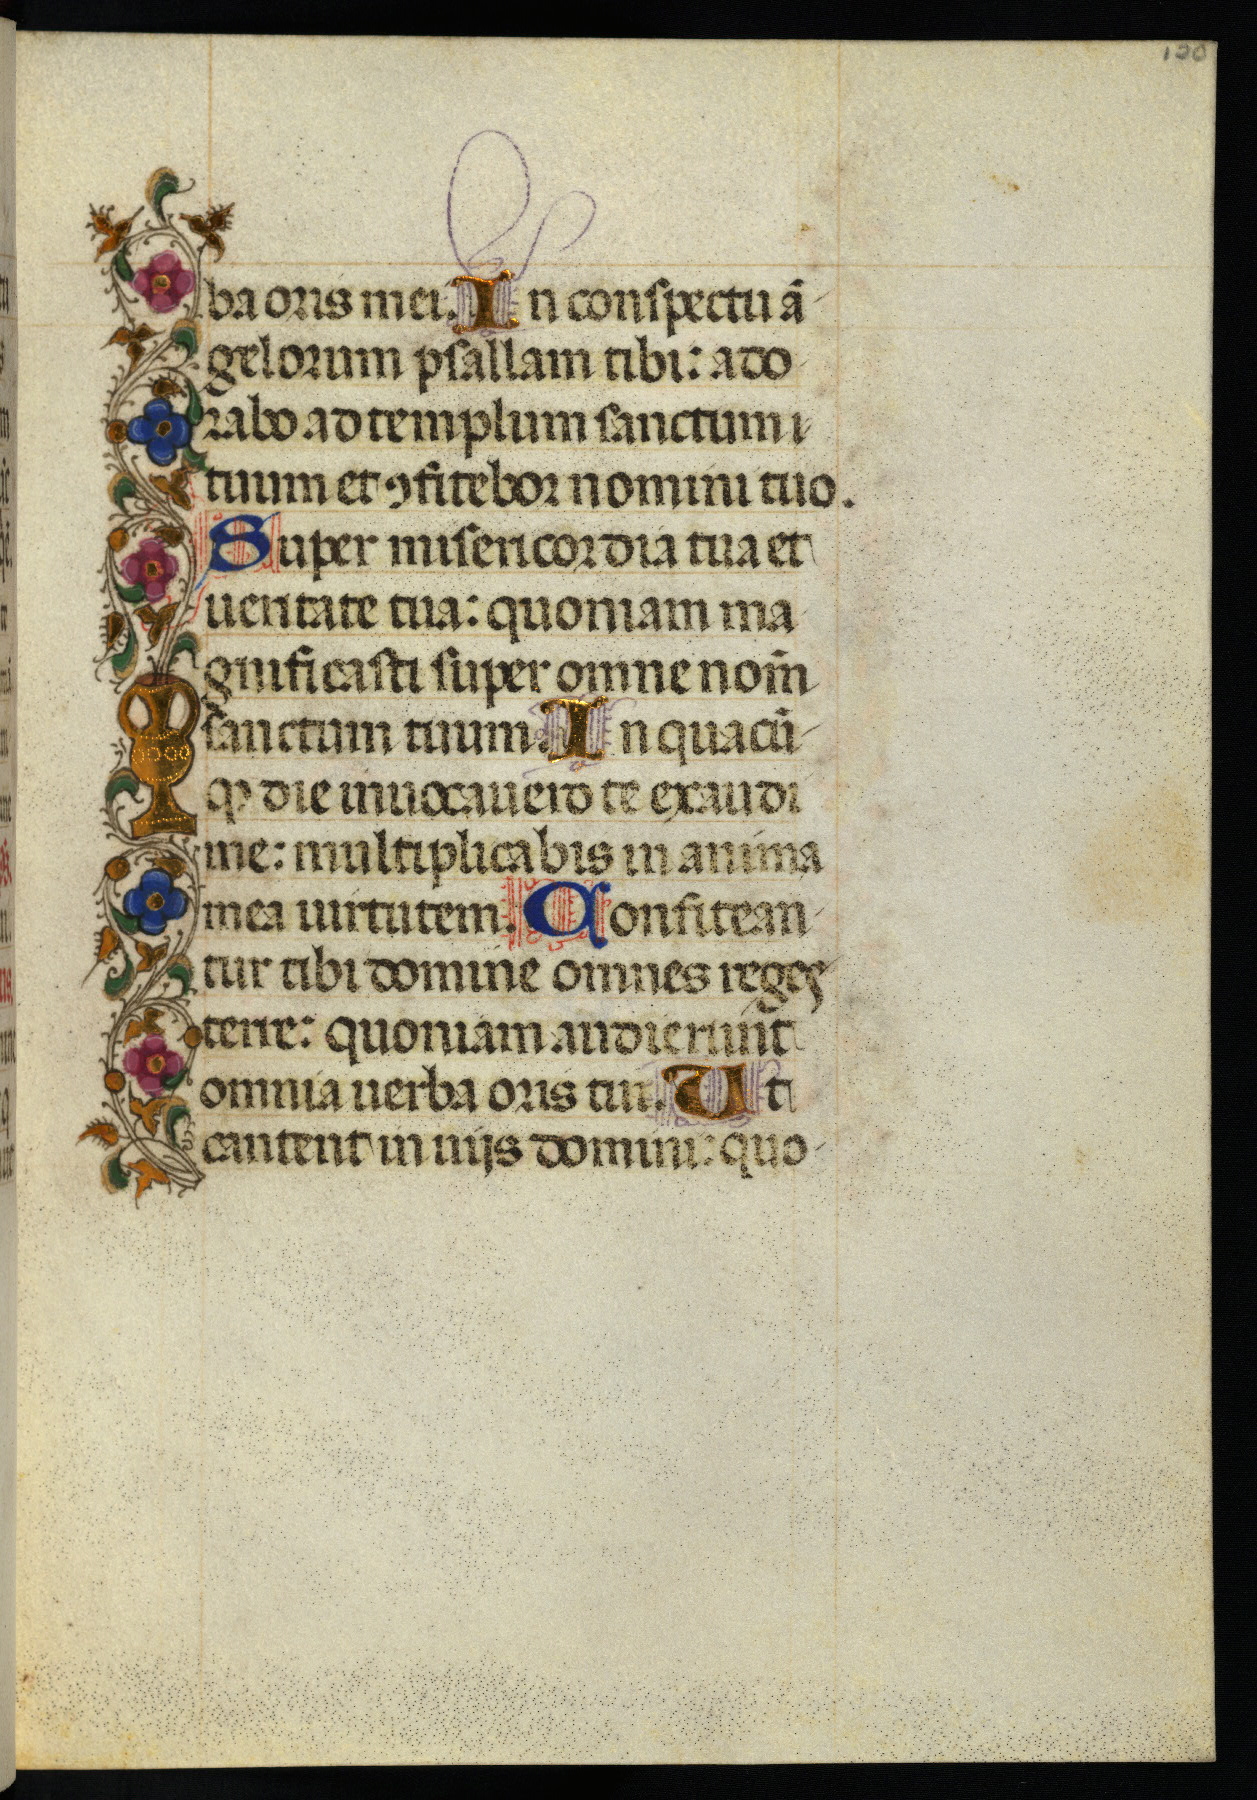 120
ba oris mei. In conspectu ā
gelorum psallam tibi: ado
rabo ad templum sanctum
tuum et ꝯfitebor nomini tuo.
Super misericordia tua et
ueritate tua: quoniam ma
gnificasti super omne nom̄
sanctum tuum. In quacū
qꝫ die inuocauero te exaudi
me: multiplicabis in anima
mea uirtutem. Confitean
tur tibi domine omnes reges
terre: quoniam audierunt
omnia uerba oris tui. Et
cantent in uijs domini: quo